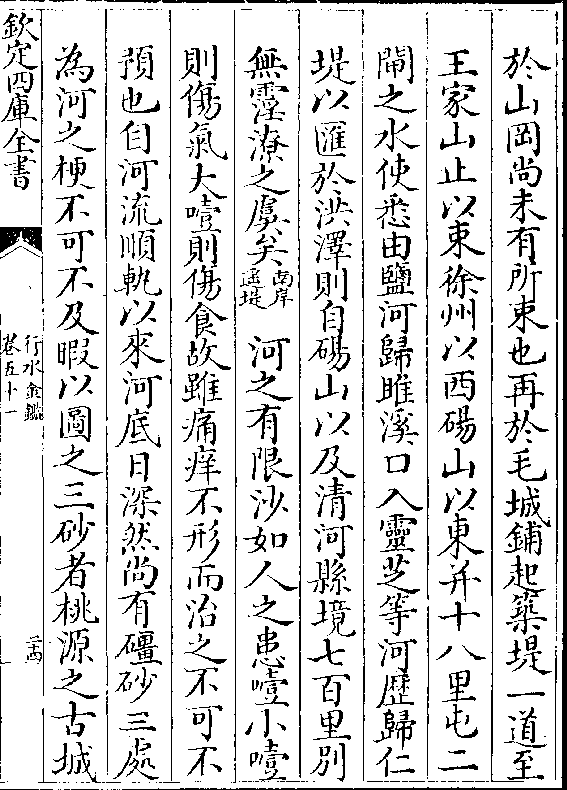 於山岡尚未有所束也再於毛城鋪起築堤一道至
王家山止以東徐州以西碭山以東并十八里屯二
閘之水使悉由鹽河歸睢溪口入靈芝等河歷歸仁
堤以匯於洪澤則自碭山以及清河縣境七百里別
無霪潦之虞矣南岸遥堤　河之有限沙如人之患噎小噎
則傷氣大噎則傷食故雖痛痒不形而治之不可不
預也自河流順軌以來河底日深然尚有礓砂三處
為河之梗不可不及暇以圖之三砂者桃源之古城
欽定四庫全書
行水金鑑
卷五十一
二十四